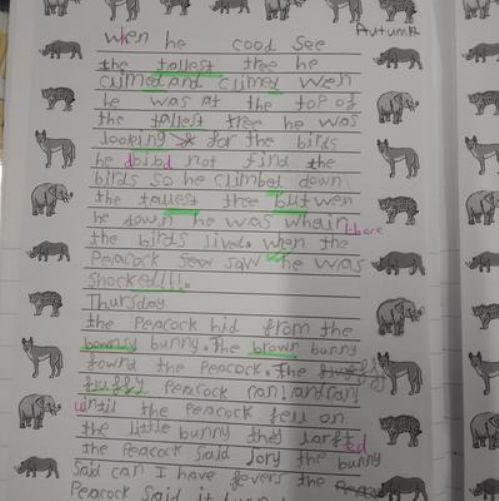 Autumn
when he cood see
the tallest tree he
climed and climed wen
he was at the top of
the tallest tree he was
looking for the birds
he did not find the
birds so he climbed down
the tallest tree but wen
he down he was whair there
the birds lived. when the
Peacock saw he was
shocked!!!.
Thursday
the Peacock hid from the
bouncy bunny. The brown bunny
fownd the Peacock. The
fluffy Peacock ran! and ran
until the Peacock fell on
the little bunny they larfted
the Peacock said the bunny
said can I have fevers the
Peacock said it